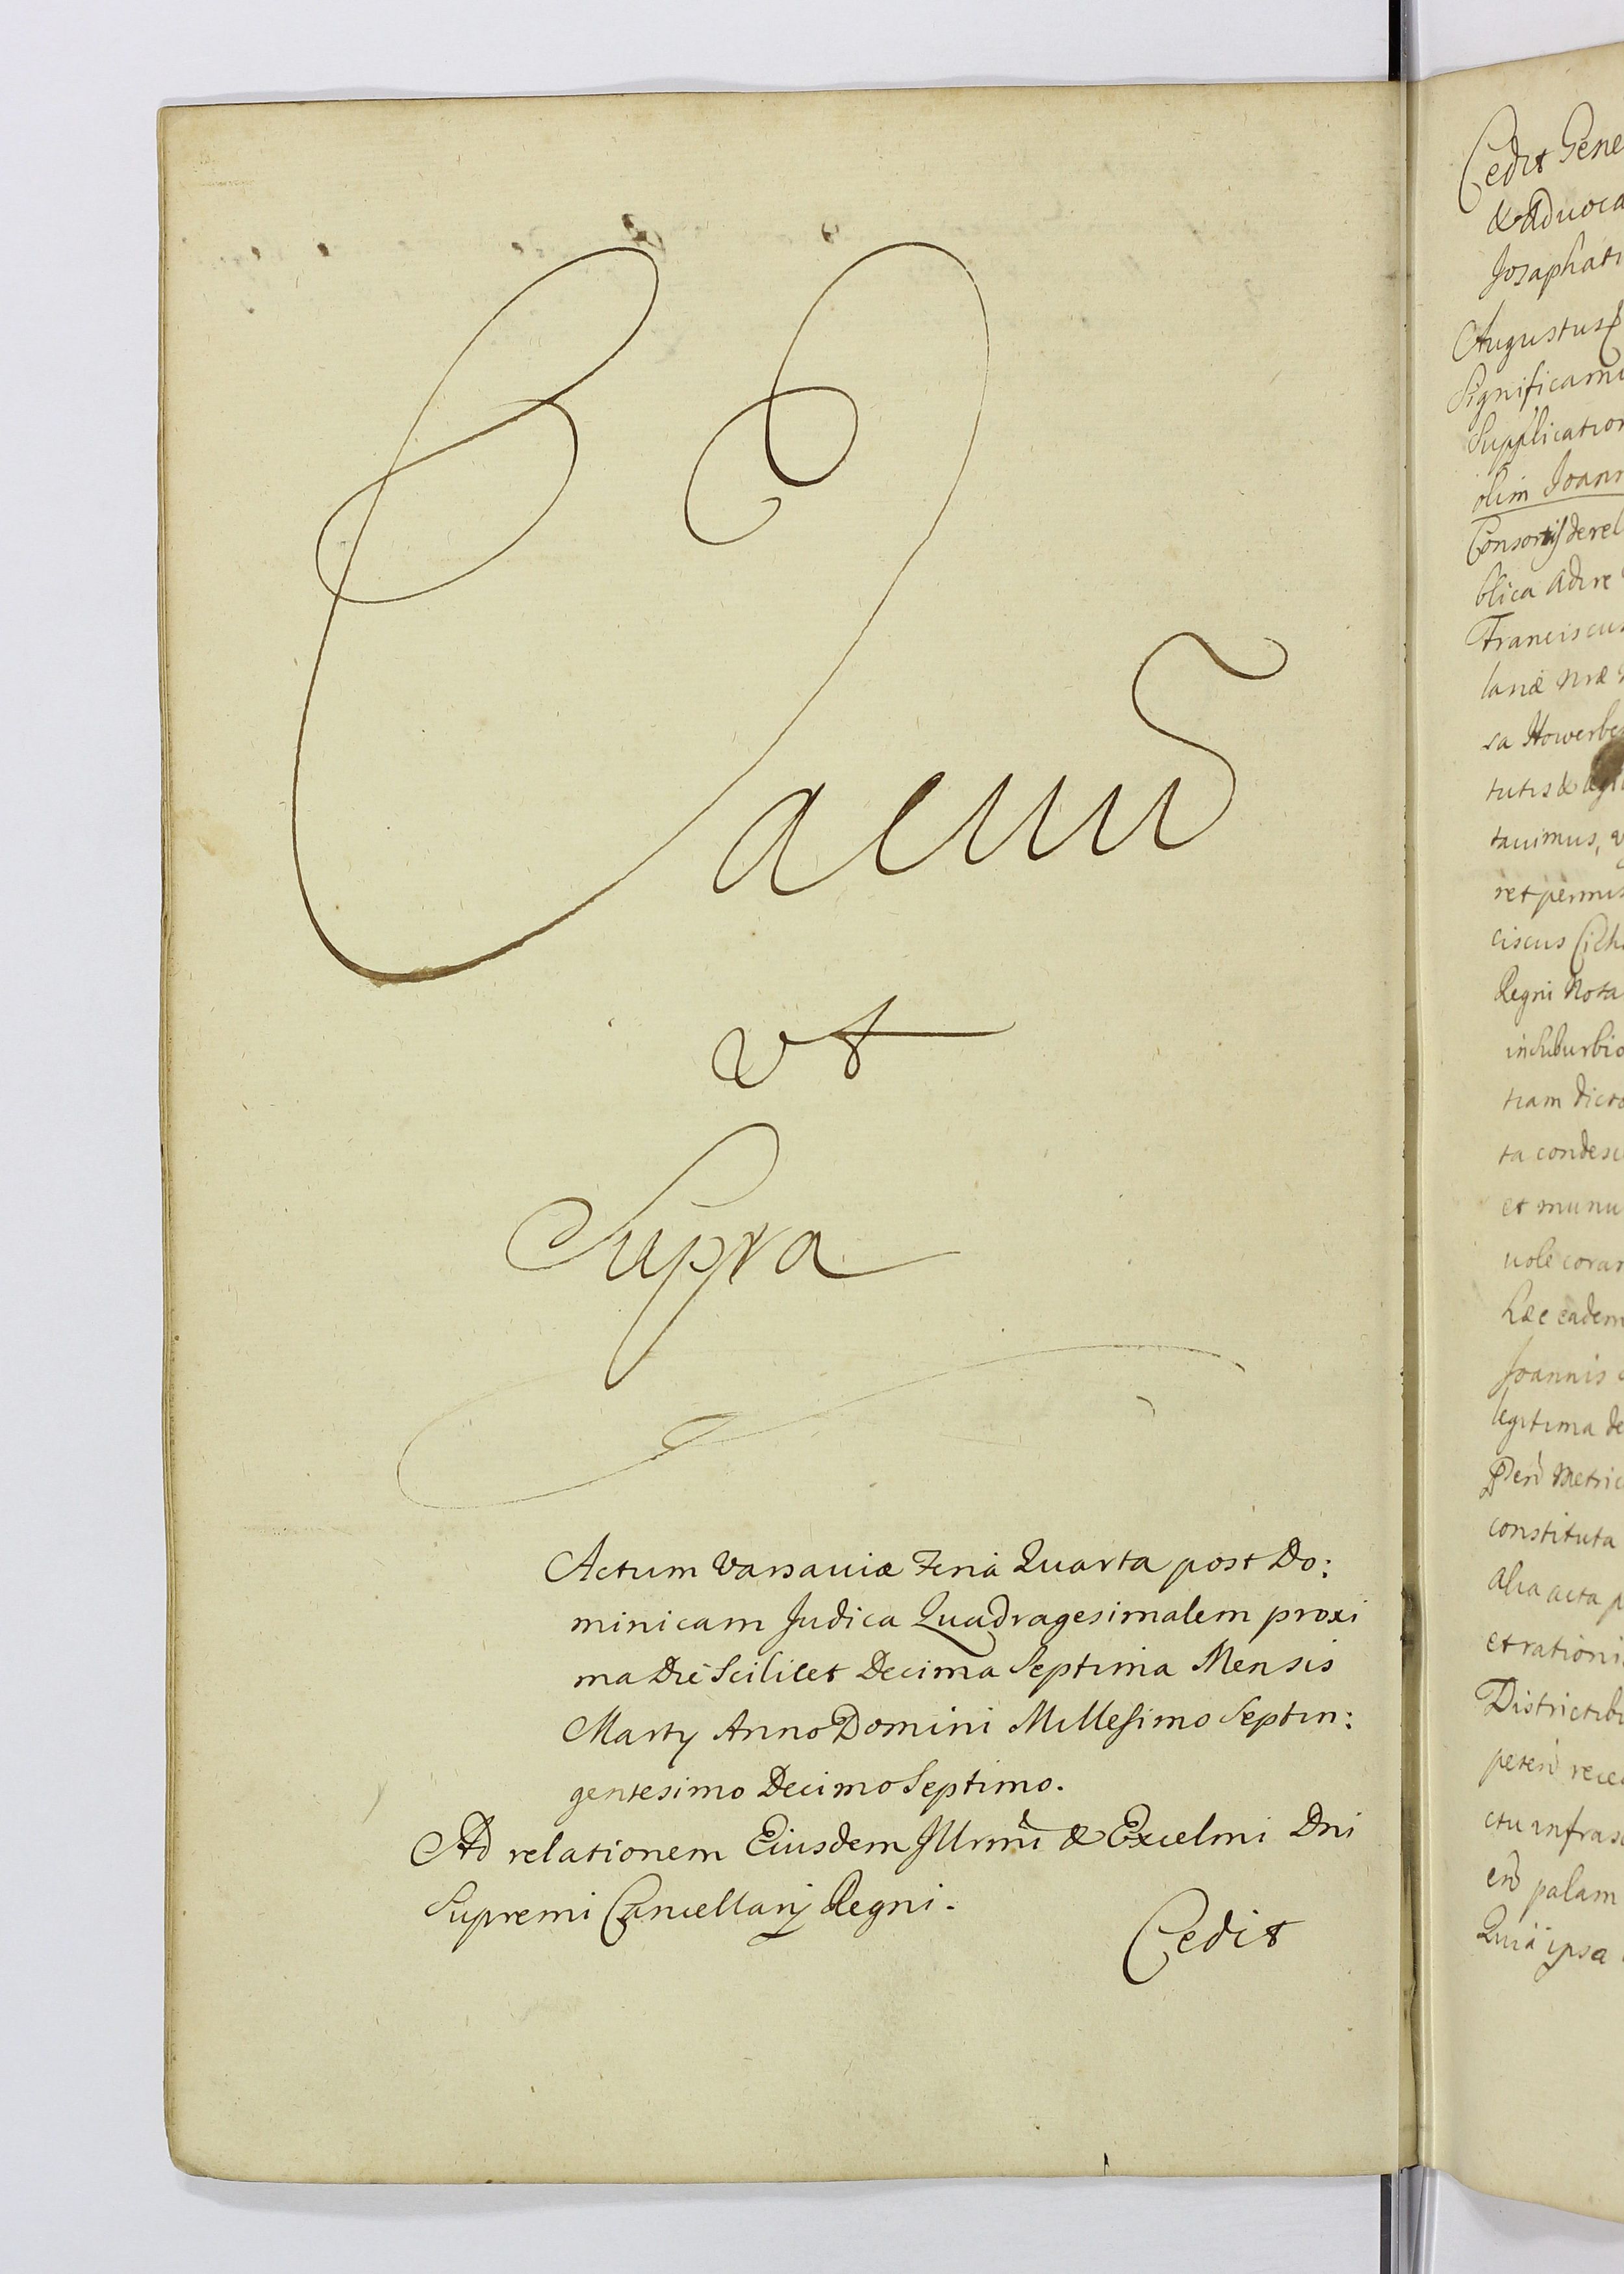 Vacuũ
vt
Supra
Actum Varsaviæ Feria Quarta post Do:
minicam Judica Quadragesimalem proxi
ma Die Scilicet Decima Septima Mensis
Martÿ Anno Domini Millesimo Septin:
gentesimo Decimo Septimo.
Ad relationem Eiusdem Illrmi & Excelmi Dni
Supremi Cancellarÿ Regni.
Cedit
Cedit Gene
& Aduoca
Josaphati
Augustus
Significamu
Supplication
olim Joann
blica adire
Franciscus
lariæ Nræ
sa Howerbe
tauimus,
ret permis
ciscus Cich
Regni Nota
in Suburbio
tiam dicto
ta condesc
et munu
uole coram
hæc eadem
Joannis
legitima de
Metric
constituta
alia acta p
et rationi
Districtibu
peten rece
ctu infrasc
palam
Quia ipsa